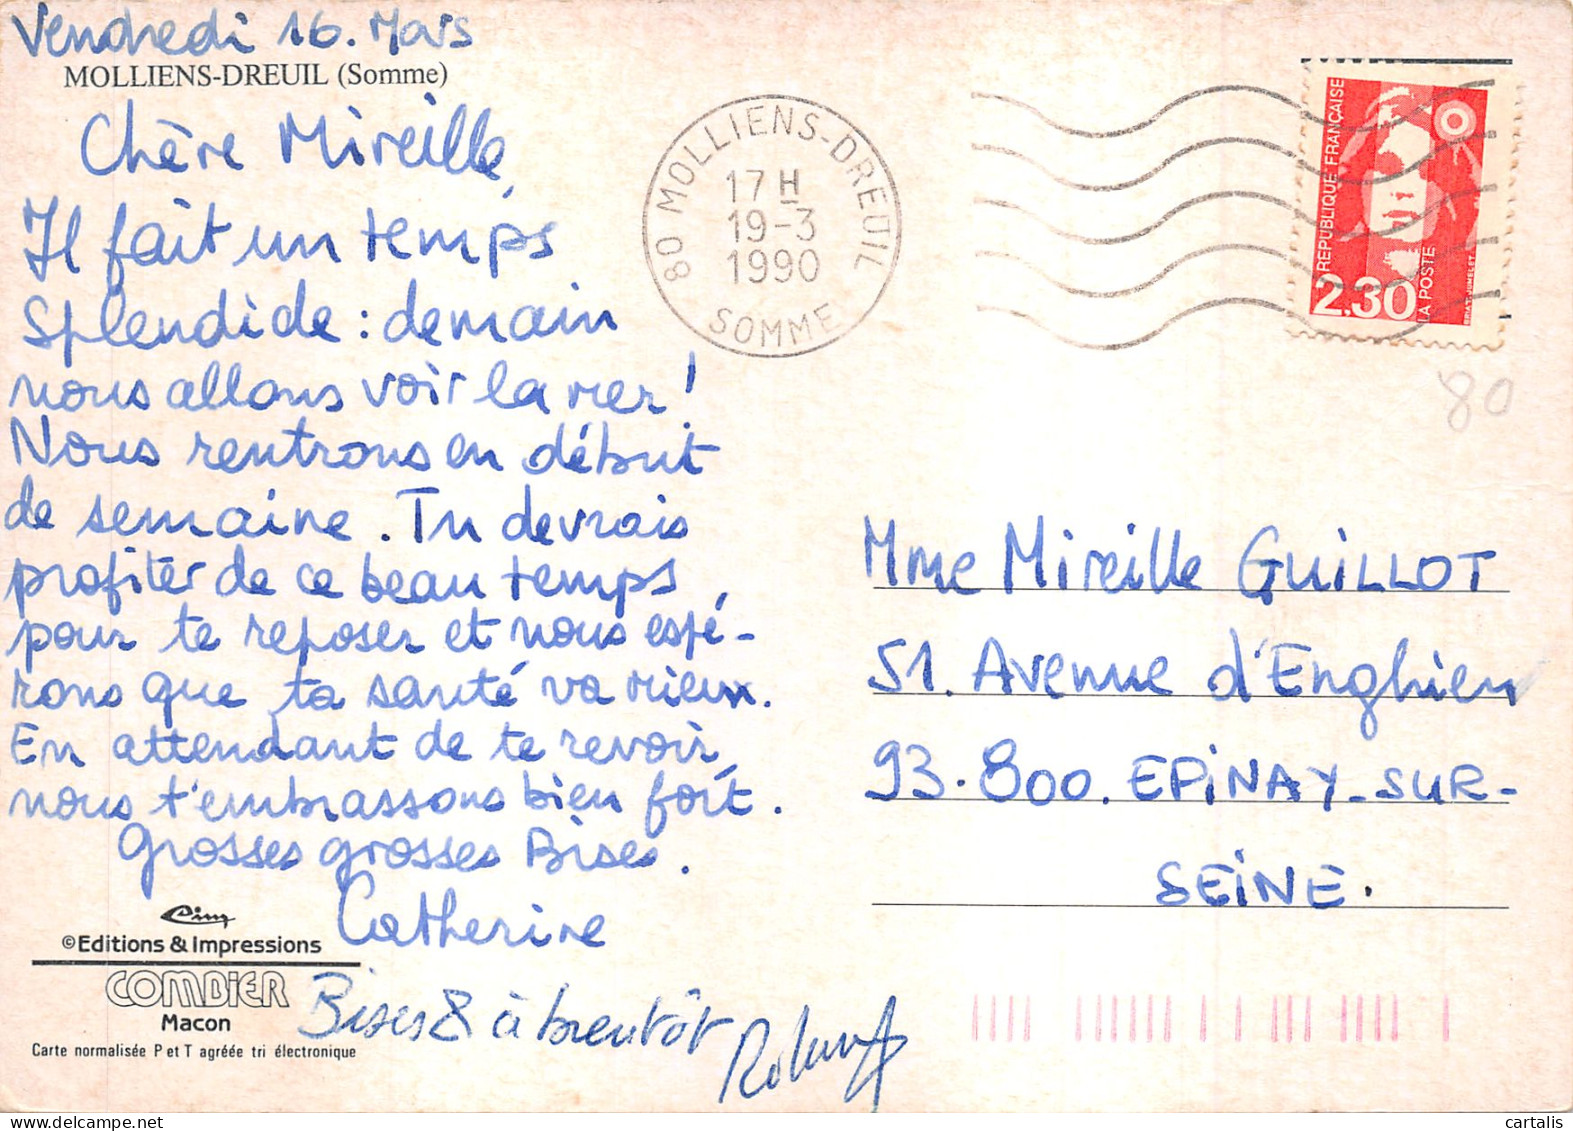 Vendredi 16. Mars
MOLLIENS-DREUIL (Somme)
Chère Mireille,
Il fait un temps
splendide : demain
nous allons voir la mer !
Nous rentrons en début
de semaine. Tu devrais
profiter de ce beau temps
pour te reposer et nous espé-
rons que ta santé va mieux.
En attendant de te revoir,
nous t'embrassons bien fort.
Grosses grosses Bises.
Catherine
Bises & à bientôt
Cim
©Editions & Impressions
COMBIER
Macon
Carte normalisée P et T agréée tri électronique
80 MOLLIENS-DREUIL
17 H
19-3
1990
SOMME
REPUBLIQUE FRANÇAISE
2,30
LA POSTE
80
Mme Mireille GUILLOT
51. Avenue d'Enghien
93.800. EPINAY-SUR-
SEINE.
cartalis